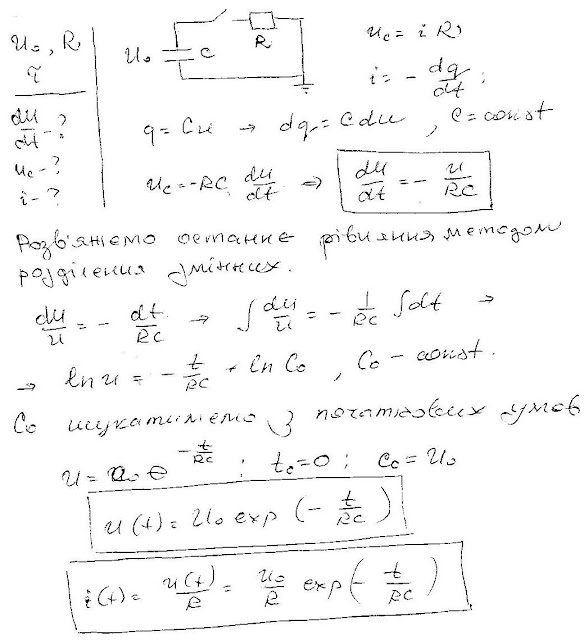 U₀, R,
τ
du/dt - ?
u_c - ?
i - ?
U₀ C R
u_c = i R)
i = - dq/dt ;
q = Cu → dq = C du , C = const
u_c = -RC du/dt ⇒ du/dt = - u/RC
Розв'яжемо останнє рівняння методом
розділення змінних.
du/u = - dt/RC → ∫ du/u = - 1/RC ∫ dt →
→ ln u = - t/RC + ln C₀ , C₀ - const.
C₀ шукатимемо з початкових умов
u = C₀ e^(-t/RC) ; t₀ = 0 ; C₀ = U₀
u(t) = U₀ exp (- t/RC)
i(t) = u(t)/R = U₀/R exp(- t/RC)